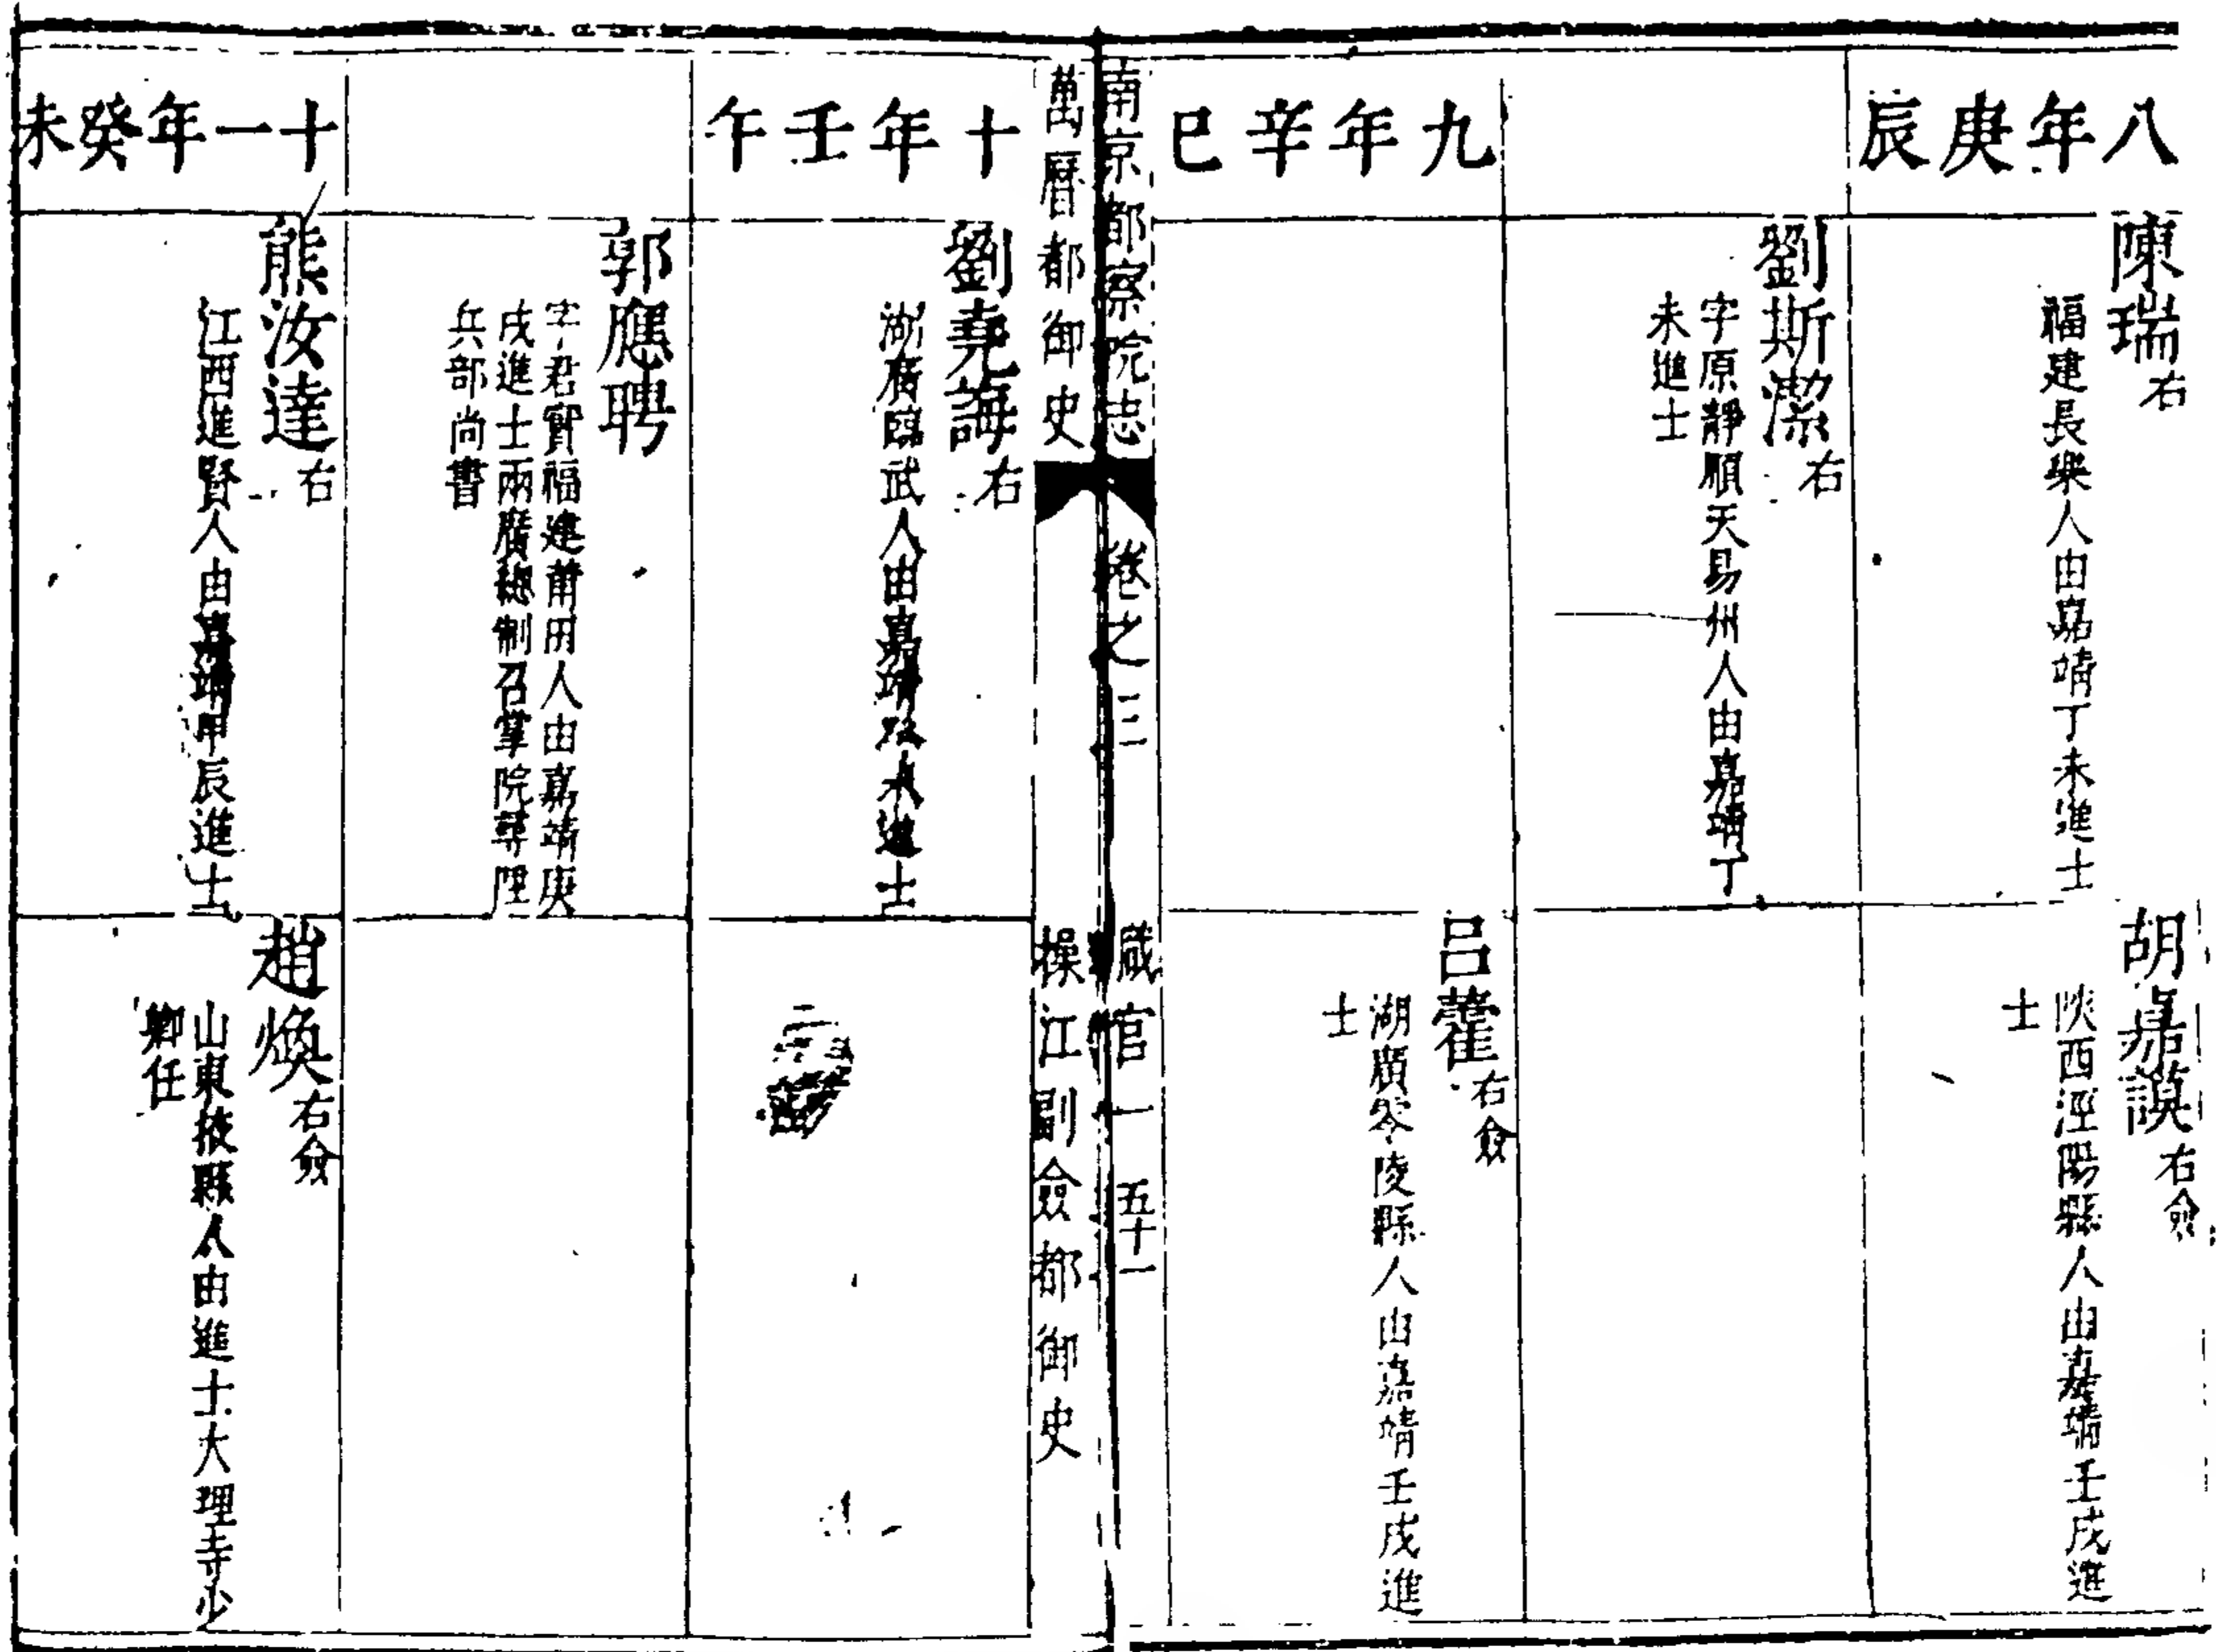 八年庚辰
陳瑞右
福建長樂人由嘉靖丁未進士
胡嘉謨右僉
陝西涇陽縣人由嘉靖壬戌進
士
劉斯潔右
字原靜順天易州人由嘉靖丁
未進士
九年辛巳
呂藿右僉
湖廣零陵縣人由嘉靖壬戌進
士
南京都察院志
卷之三
職官一
五十一
萬曆都御史
操江副僉都御史
十年壬午
劉堯誨右
湖廣臨武人由嘉靖癸未進士
郭應聘
字君實福建莆田人由嘉靖庚
戌進士兩廣總制召掌院尋陞
兵部尚書
十一年癸未
熊汝達右
江西進賢人由嘉靖甲辰進士
趙煥右僉
山東掖縣人由進士大理寺少
卿任